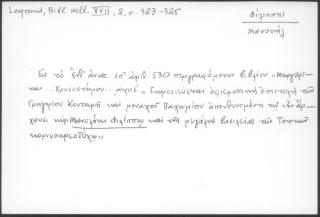 Legrand, Bibl. Hell. XVII, 2, σ. 323-325
Φίλιππος
Μανουήλ
Εἰς τὸ ὑπ' ἀριθ. 530 περιγραφόμενον βιβλίον "Μαργαρῖ-
ται... Χρυσοστόμου... δημοσιεύεται ἀφιερωτικὴ ἐπιστολὴ τῶν
Γρηγορίου καὶ μοναχοῦ Παχωμίου ἀπευθυνομένη τῷ "ἐν ἄρ-
χουσι κὺρ Μανολάκῃ Φιλίππῳ καὶ τῆς μεγάλης βασιλείας τῶν Τουρκῶν